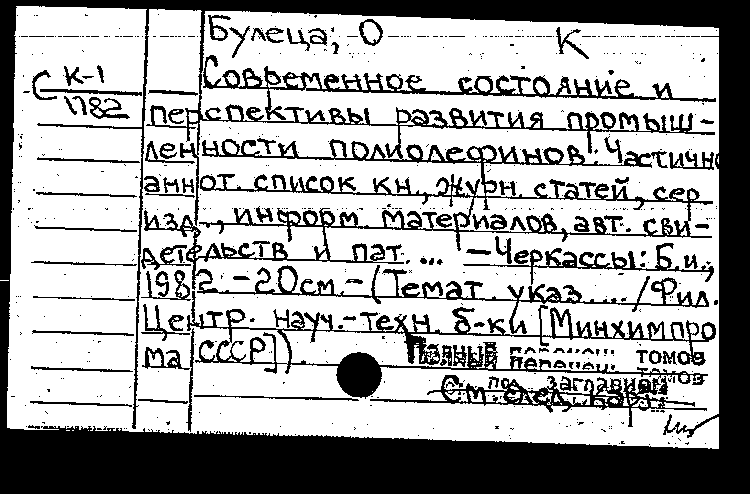 Булеца; О К
С К-1
1782
Современное состояние и
перспективы развития промыш-
ленности полиолефинов: Частично
аннот. список кн., журн. статей, сер.
изд., информ. материалов, авт. сви-
детельств и пат. ... —Черкассы: Б.и.,
1982. -20см. -(Темат. указ. .../Фил.
Центр. науч.-техн. б-ки [Минхимпро
ма СССР]).
Полный перечень томов
под заглавием
См. след. карт.